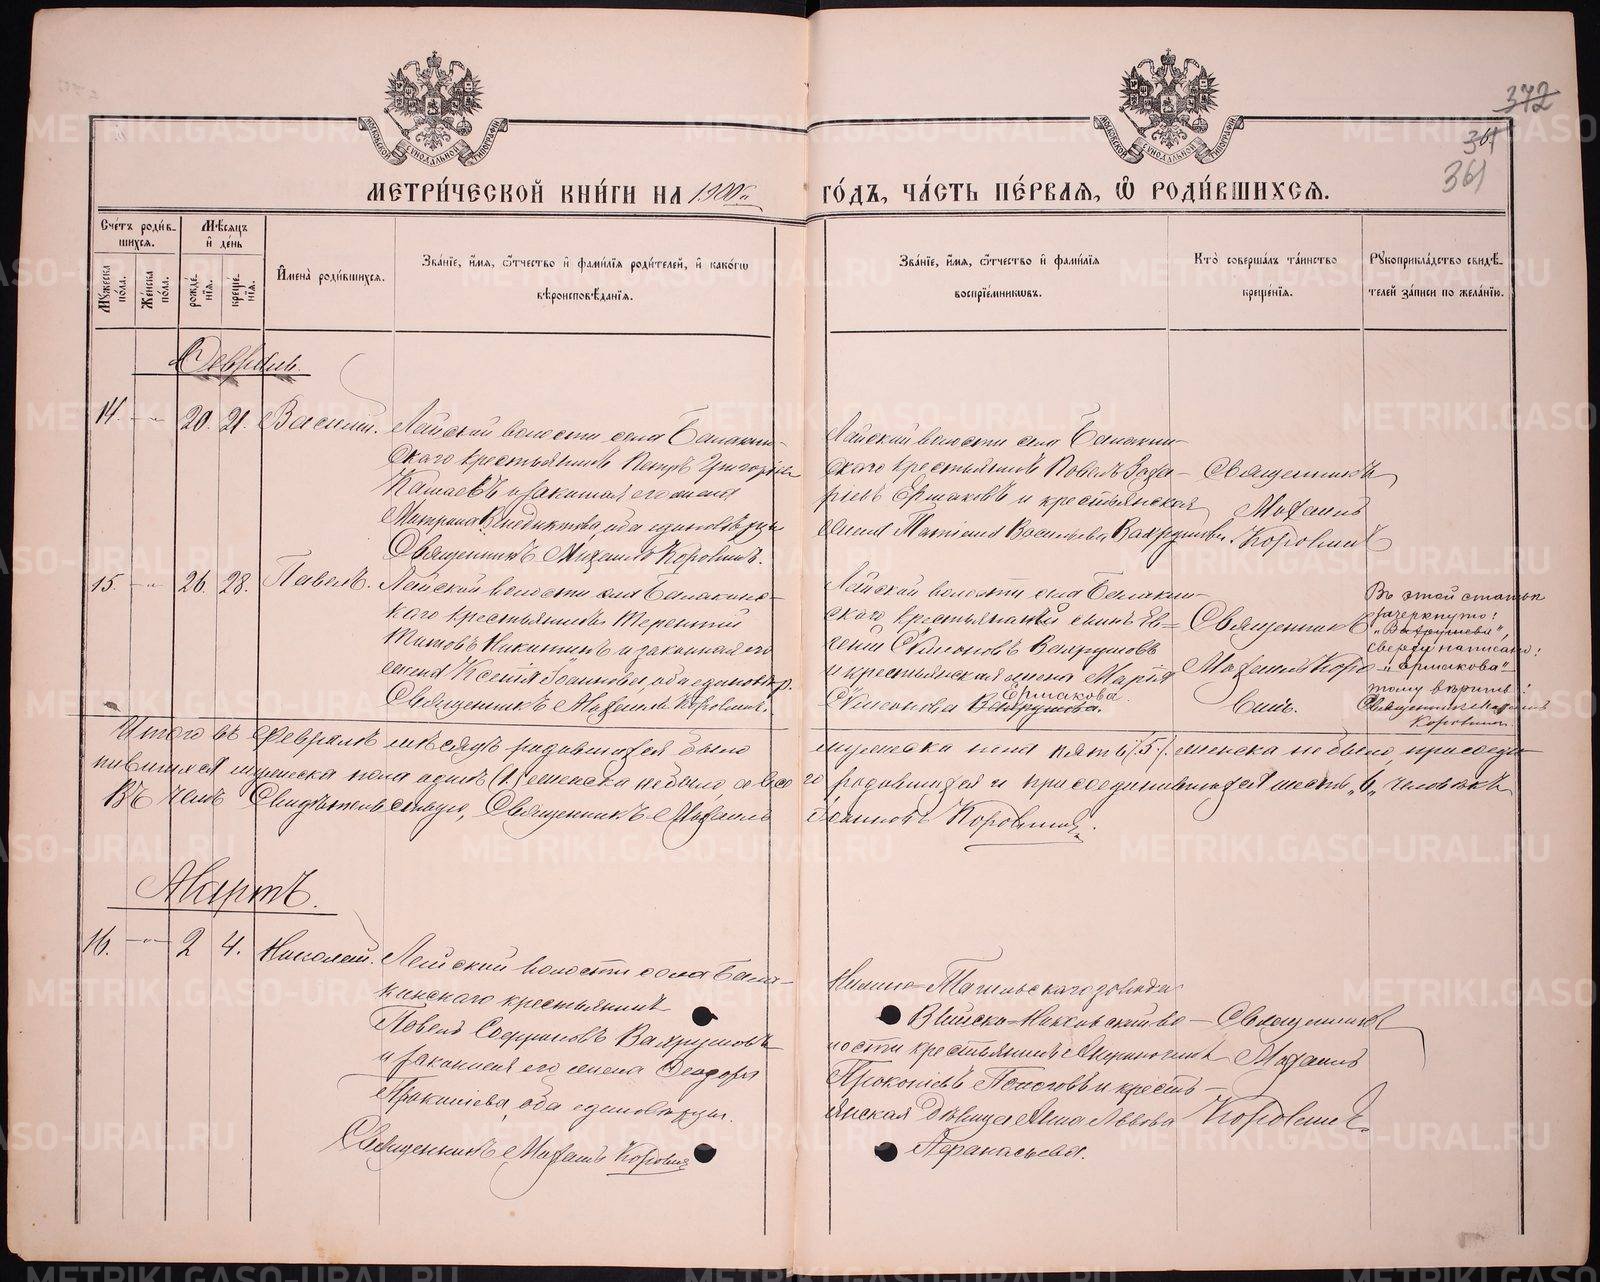 372
361
361
МЕТРИ́ЧЕСКОЙ КНИ́ГИ НА 1900й ГО́ДЪ, ЧА́СТЬ ПЕ́РВАЯ, Ѡ҆ РОДИ́ВШИХСЯ.
Сче́тъ роди́в-
шихся.
Мѣ́сяцъ
и҆ де́нь
Мꙋ́жеска по́ла.
Же́нска по́ла.
рожде́-
нїѧ.
креще́-
нїѧ.
И҆мена̀ роди́вшихся.
Зва́нїе, и҆́мя, ѻ҆́тчество и҆ фами́лїя роди́телей, и҆ како́гѡ
вѣроисповѣ́данїя.
Зва́нїе, и҆́мя, ѻ҆́тчество и҆ фами́лїя
воспрїе́мникѡвъ.
Кто̀ соверша́лъ та́инство
креще́нїя.
Рꙋкоприкла́дство свидѣ́-
телей за́писи по жела́нїю.
Февраль.
14. — 20. 21. Василий.
Лайской волости села Балакин-
скаго крестьянинъ Петръ Григорiевъ
и законная его жена
Матрона Венедиктова, оба единовѣрцы
Священникъ Михаилъ Коровинъ.
Лайской волости села Балакин-
скаго крестьянинъ Павелъ Заха-
рiевъ Ермаковъ и крестьянская
жена Васильева Вахрушева.
Священникъ
Михаилъ
Коровинъ
15. — 26. 28. Павелъ.
Лайской волости села Балакинс-
каго крестьянинъ Терентiй
Титовъ Никитинъ и законная его
жена Ксенiя Iоаннова, оба единовѣр.
Священникъ Михаилъ Коровинъ.
Лайской волости села Балакин-
скаго крестьянскiй сынъ Ев-
генiй Симеоновъ Вахрушевъ
и крестьянская жена Марiя
Ермакова
Симеонова Вахрушева.
Священникъ
Михаилъ Коро-
винъ.
Въ этой статье
зачеркнуто:
„Вахрушева“,
сверху написано:
„Ермакова“
тому верить:
Священникъ Михаилъ
Коровинъ.
Итого въ Февралѣ мѣсяцѣ родившихся было мужеска пола пять /5/ женска не было, присоеди-
нившихся мужеска пола одинъ (1) женска не было, а всего родившихся и присоединившихся шесть „6“ человѣкъ
Въ чемъ свидѣтельствую, Священникъ Михаилъ Iоанновъ Коровинъ.
Мартъ.
16. — 2 4. Николай.
Лайской волости села Бала-
кинскаго крестьянинъ
Павелъ Софроновъ Вахрушевъ
и законная его жена Ѳеодора
Прокопiева, оба единовѣрцы.
Священникъ Михаилъ Коровинъ
Нижне-Тагильскаго завода
Выйско-Николаевской во-
лости крестьянинъ
Прокопiевъ и кресть-
янская дѣвица Анна Львова
Афанасьева.
Священникъ
Михаилъ
Коровинъ.
METRIKI.GASO-URAL.RU